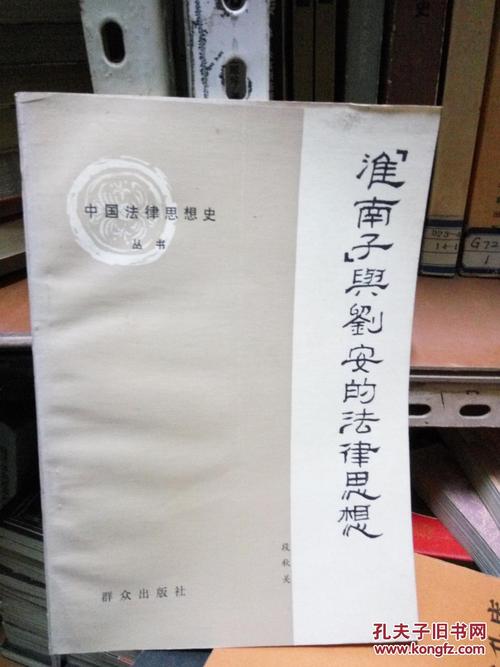 中国法律思想史
丛书
『淮南子』與劉安的法律思想
段秋关
群众出版社
923-4
14-1
G72
1
史
孔夫子旧书网
www.kongfz.com